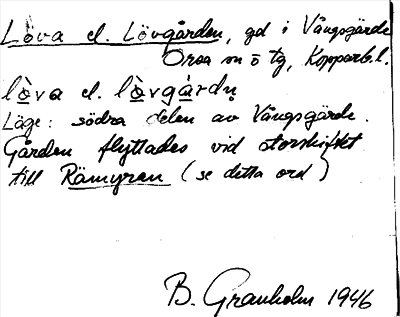 Löva el. Lövgården, gd i Vångsgärde
Orsa sn o tg, Kopparb.l.
lòva el. lòvgárdn̥
Läge: södra delen av Vångsgärde.
Gården flyttades vid storskiftet
till Rämyren (se detta ord)
B. Granholm 1946